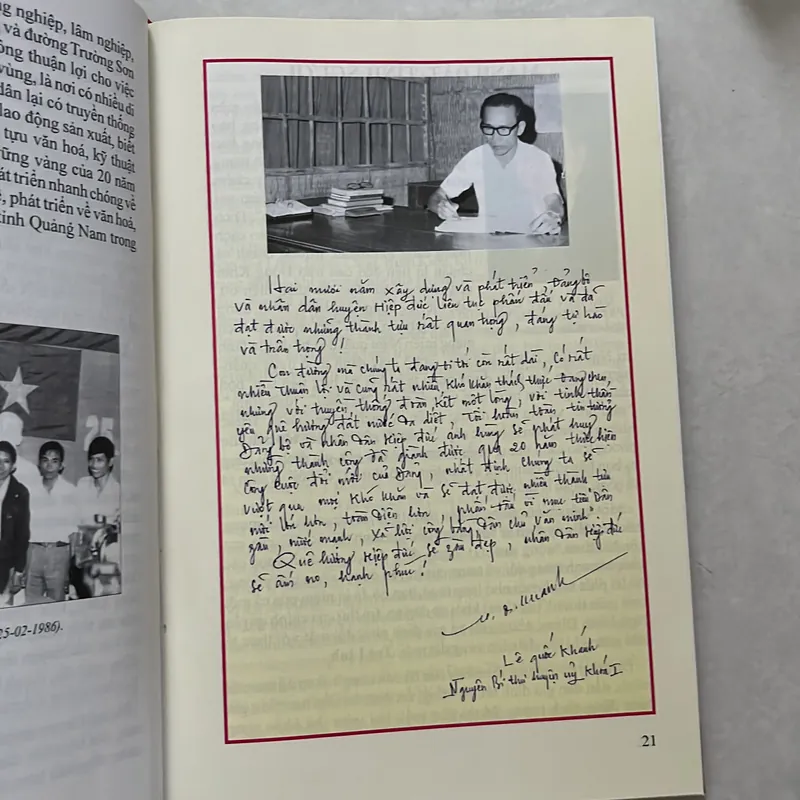 nghiệp, lâm nghiệp,
và đường Trường Sơn
thuận lợi cho việc
vùng, là nơi có nhiều di
dân lại có truyền thống
lao động sản xuất, biết
tựu văn hoá, kỹ thuật
vững vàng của 20 năm
phát triển nhanh chóng về
phát triển về văn hoá,
tỉnh Quảng Nam trong
25-02-1986).
Hai mươi năm xây dựng và phát triển Đảng bộ
và nhân dân huyện Hiệp Đức liên tục phấn đấu và đã
đạt được những thành tựu rất quan trọng, đáng tự hào
và trân trọng!
Con đường mà chúng ta đang đi tới còn rất dài, có rất
nhiều thuận lợi và cũng rất nhiều khó khăn thách thức đang chờ,
nhưng với truyền thống đoàn kết một lòng, với tinh thần
yêu quê hương đất nước da diết, tôi hoàn toàn tin tưởng
Đảng bộ và nhân dân Hiệp Đức anh hùng sẽ phát huy
những thành công đã giành được qua 20 năm thực hiện
công cuộc đổi mới của Đảng, nhất định chúng ta sẽ
vượt qua mọi khó khăn và sẽ đạt được nhiều thành tựu
mới lớn hơn, toàn diện hơn, phấn đấu vì mục tiêu "Dân
giàu, nước mạnh, xã hội công bằng dân chủ văn minh"
Quê hương Hiệp Đức sẽ giàu đẹp, nhân dân Hiệp Đức
sẽ ấm no, hạnh phúc!
Lê Quốc Khánh
Nguyên Bí thư huyện uỷ khoá I
21